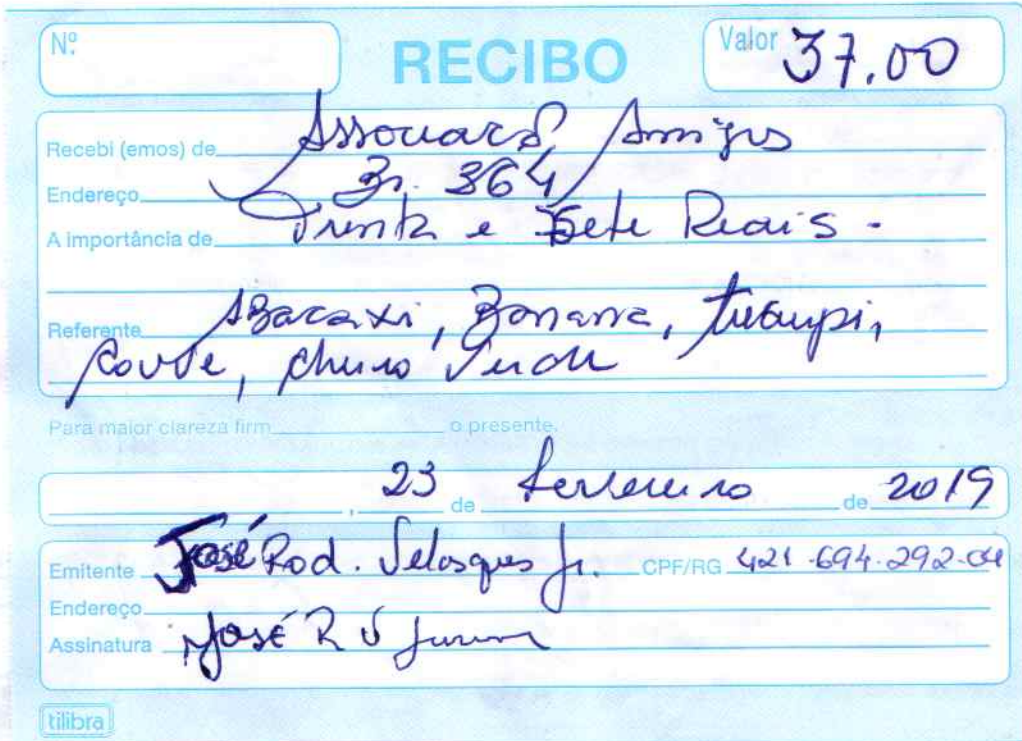 Nº
RECIBO
Valor 37.00
Recebi (emos) de Amigos
Endereço Br. 364
A importância de Trinta e Sete Reais -
Referente Abacaxi, Banana,
Couve, cheiro Verde
Para maior clareza firm o presente.
, 23 de fevereiro de 2019
Emitente José Rod. Velasques Jr. CPF/RG 421.694.292-04
Endereço
Assinatura José R V Junior
tilibra